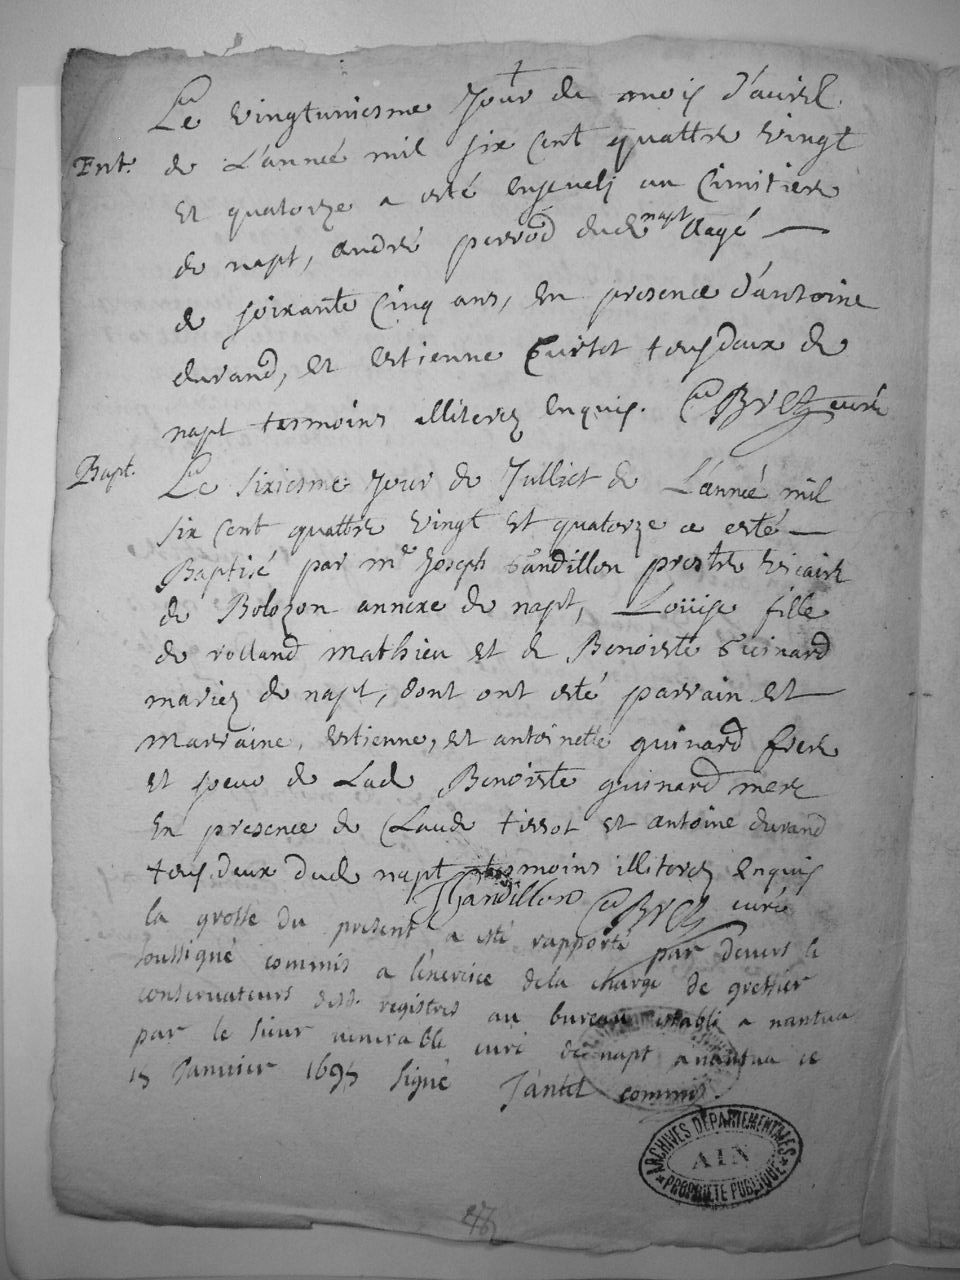 Le vingtuniesme Jour du mois d'avril
Ent. de L'année mil six cent quattre vingt
Et quatorze a esté ensevely au Cimitiere
de napt, André perrod dud. napt Aagé —
de soixante Cinq ans, En presence d'antoine
durand, et Estienne tous deux de
napt tesmoins illiterez Enquis. curé
Bapt. Le sixiesme Jour de Julliet de L'année mil
six cent quattre vingt Et quatorze a esté —
Baptisé par mre Joseph prestre vicaire
de Bolozon annexe de napt, Louise fille
de rolland mathieu et de Benoiste Guinard
mariez de napt, dont ont esté parrain et
marraine, Estienne, et antoinette guinard frere
et soeur de Lad. Benoiste guinard mere
En presence de Claude tissot et antoine durand
tous deux dud. napt tesmoins illiterez Enquis
curé
la grosse du present a esté rapporté par devers le
soussigné commis a l'exercice de la charge de greffier
conservateurs desd. registres au bureau establi a nantua
par le sieur venerable curé de napt a nantua ce
15 Janvier 1695 signé Jantet commis.
ARCHIVES DÉPARTEMENTALES
AIN
PROPRIÉTÉ PUBLIQUE